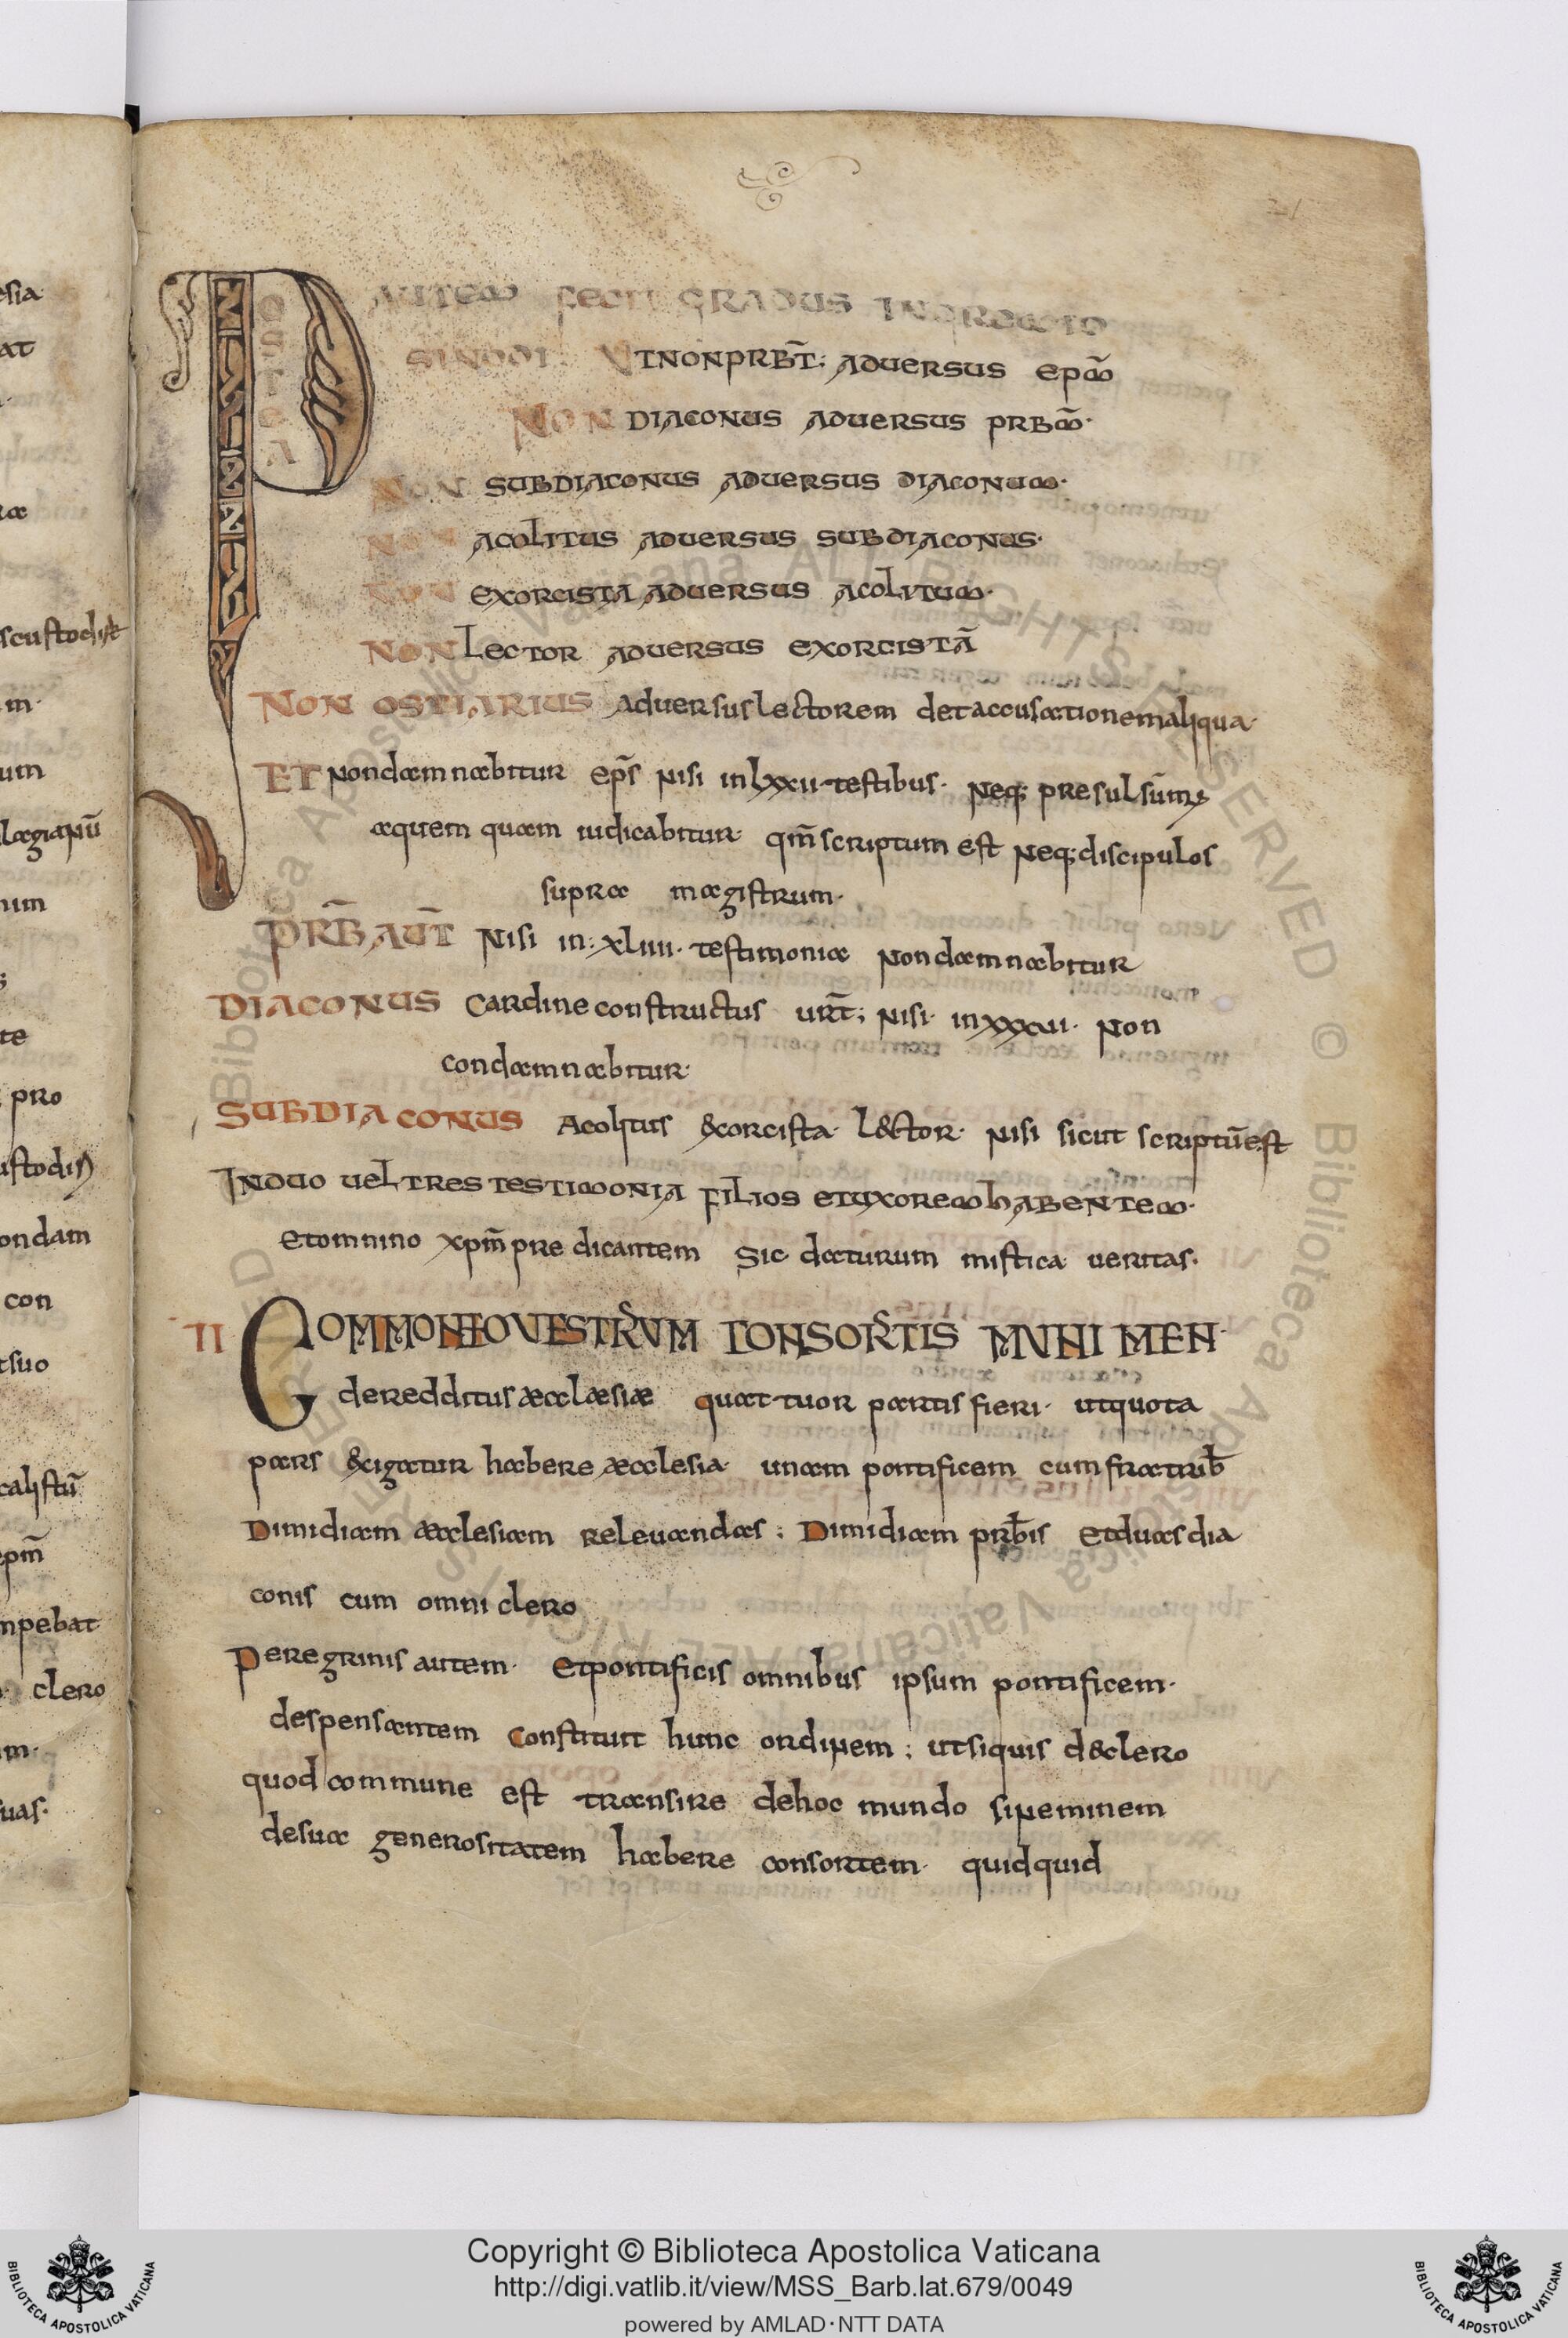 POSTEA AUTEM FECIT GRADUS IN GREMIO
SINODI UT NON PRBT̄; ADVERSUS EPM̄
NON DIACONUS ADVERSUS PRBM̄·
NON SUBDIACONUS ADVERSUS DIACONUM·
NON ACOLITUS ADVERSUS SUBDIACONUS·
NON EXORCISTA ADVERSUS ACOLITUM·
NON LECTOR ADVERSUS EXORCISTĀ
NON OSTIARIUS adversus lectorem det accusationem aliqua·
ET non damnabitur ep̄s nisi in lxxii testibus· neq; presul sūm
a quem quam iudicabitur· qm̄ scriptum est neq; discipulos
supra magistrum·
PRB̄ AUT̄ nisi in: xliiii· testimonia non damnabitur
DIACONUS cardine constructus urt̄; nisi· in xxxvii· non
condamnabitur·
SUBDIACONUS acolitus &xorcista· l&ctor· nisi sicut scriptū est
IN DUO VEL TRES TESTIMONIA FILIOS ET UXOREM HABENTEM·
et omnino xpm̄ predicantem sic daturum mistica veritas·
II COMMONEO VESTRVM CONSORTIS MVNIMEN·
de redditus æcclæsiæ quattuor partis fieri· ut quota
pars &cigatur habere æcclesia· unam pontificem cum fratrib̄
Dimidiam æcclesiam relevandas; Dimidiam prb̄is et duas dia
conis cum omni clero
Peregrinis autem· et pontificis omnibus ipsum pontificem·
despensantem constituit hunc ordinem; ut siquis d& clero
quod commune est transire de hoc mundo si neminem
de sua generositatem habere consortem· quidquid
Copyright © Biblioteca Apostolica Vaticana
http://digi.vatlib.it/view/MSS_Barb.lat.679/0049
powered by AMLAD·NTT DATA
BIBLIOTECA APOSTOLICA VATICANA
BIBLIOTECA APOSTOLICA VATICANA